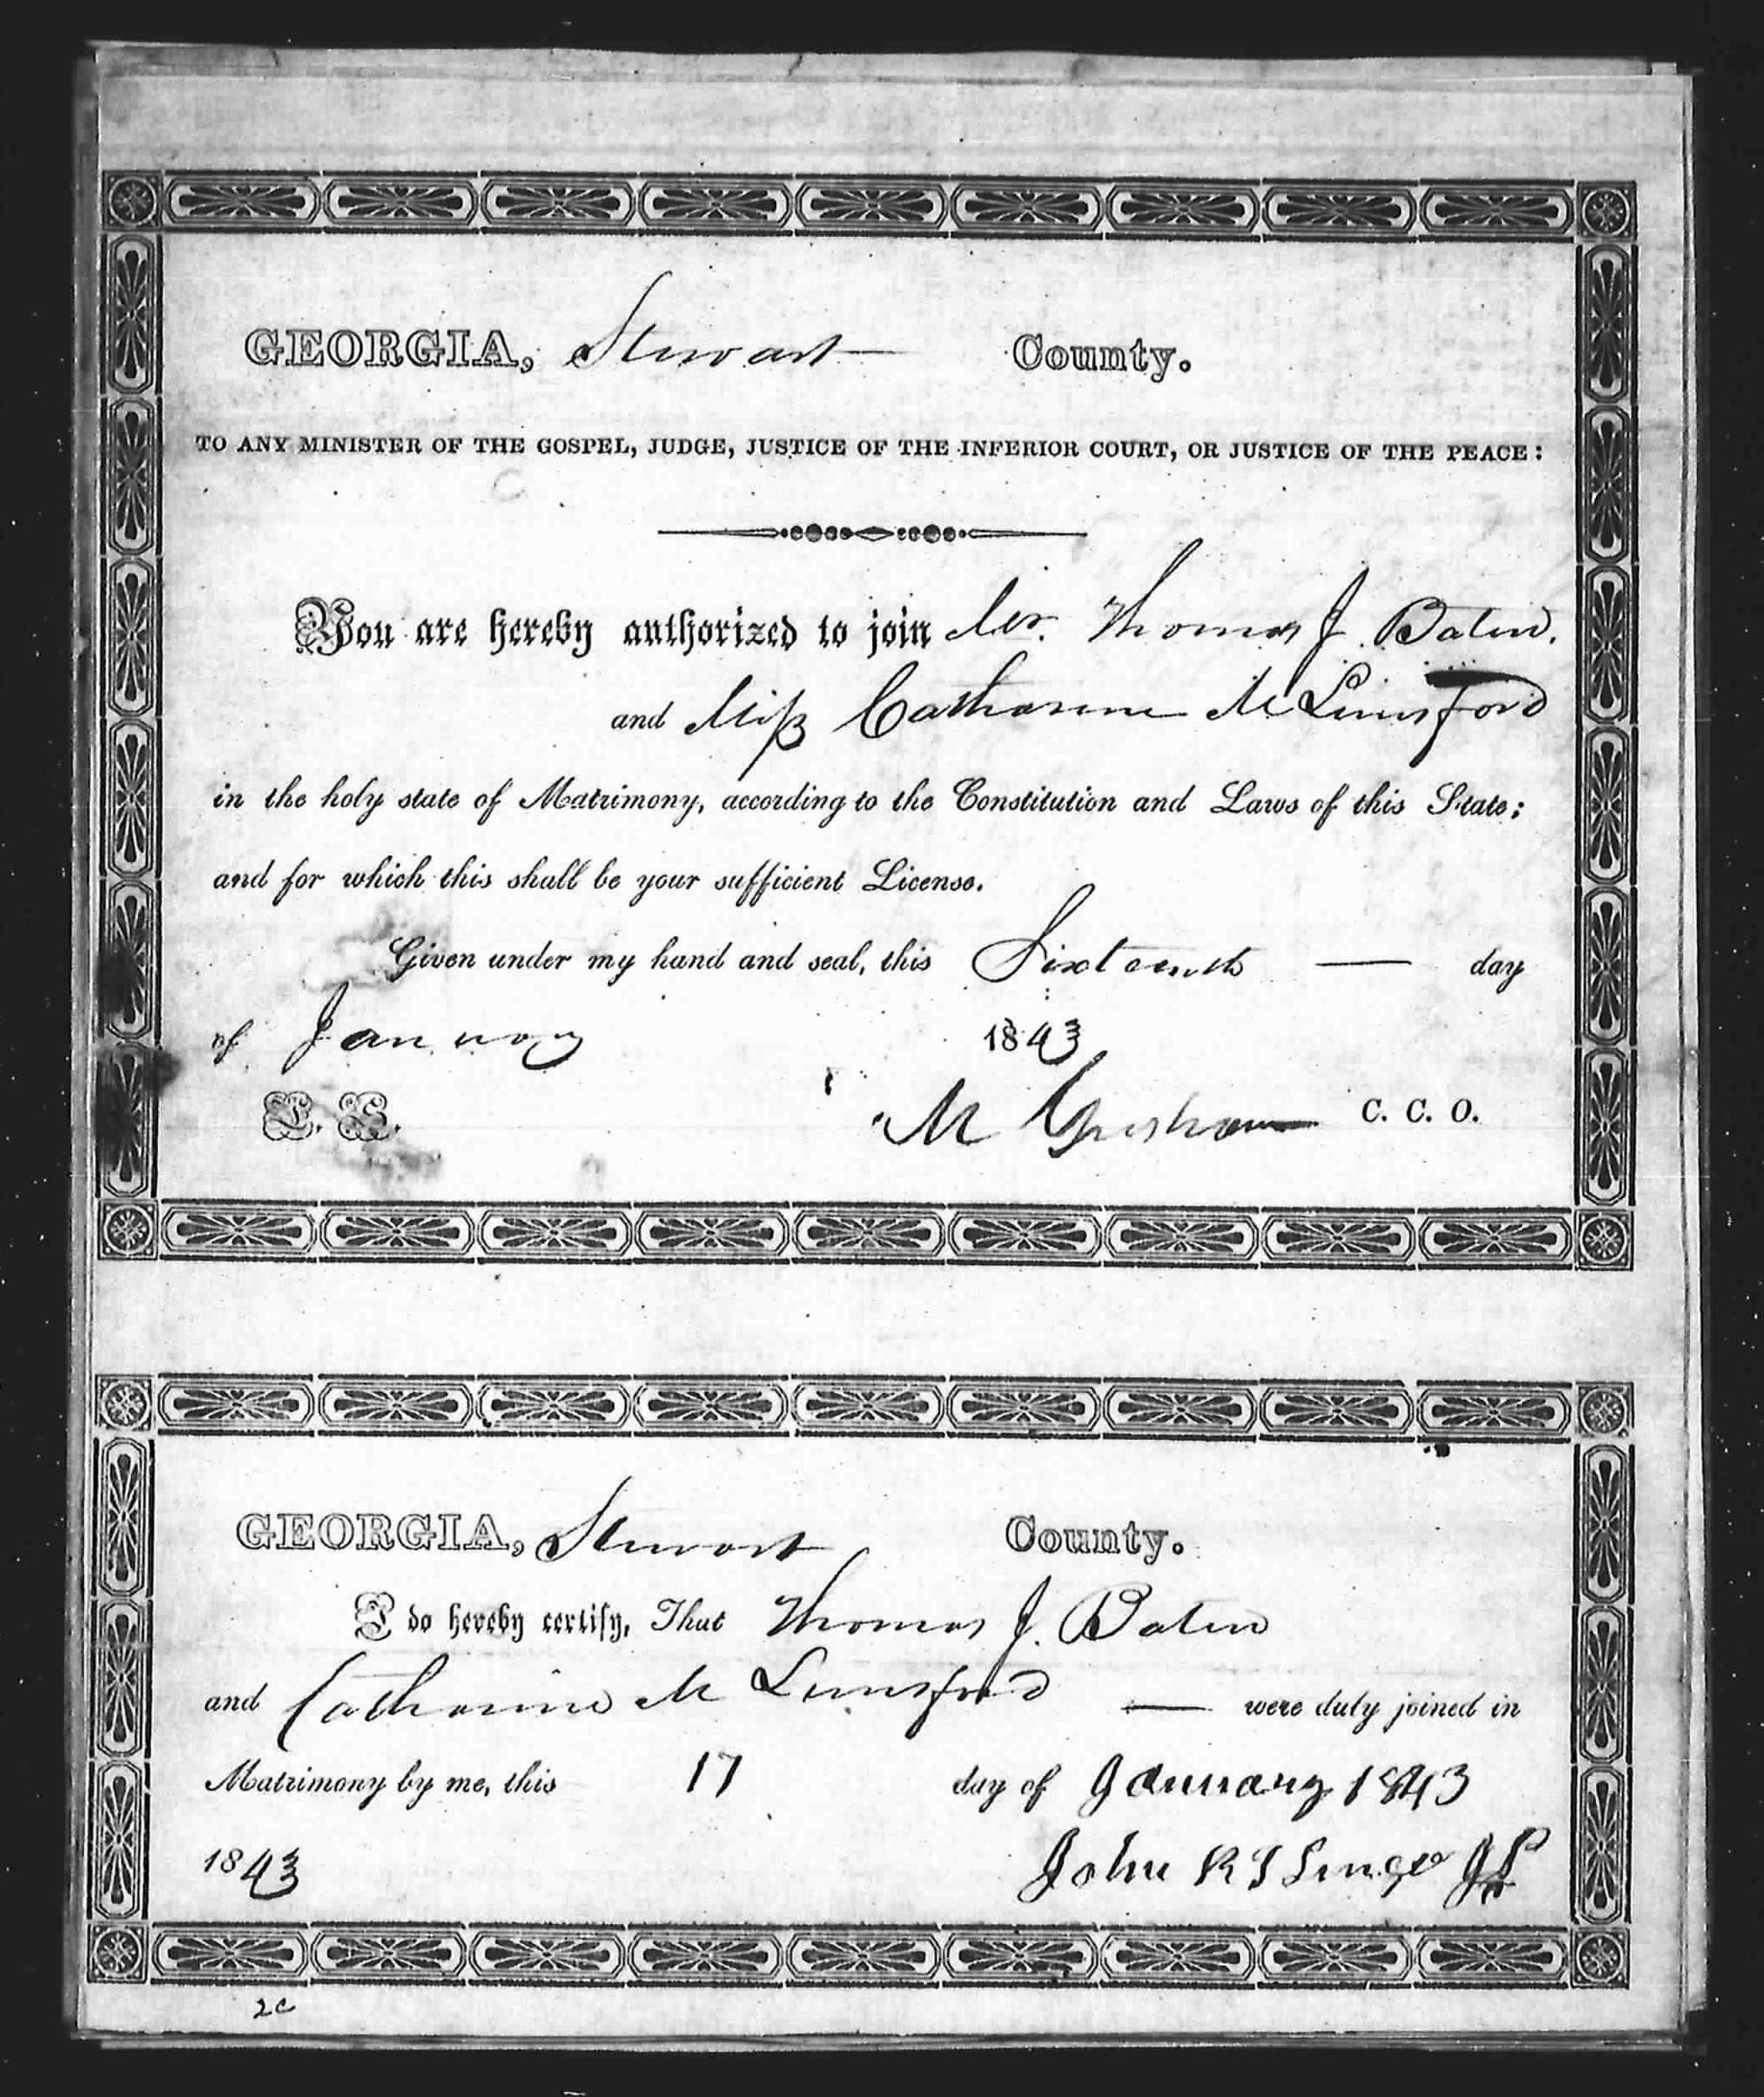 GEORGIA, Stewart County.
TO ANY MINISTER OF THE GOSPEL, JUDGE, JUSTICE OF THE INFERIOR COURT, OR JUSTICE OF THE PEACE:
You are hereby authorized to join Mr. Thomas J. Baten.
and Miss Catharine M Lunsford
in the holy state of Matrimony, according to the Constitution and Laws of this State;
and for which this shall be your sufficient License.
Given under my hand and seal, this Sixteenth — day
of January 1843
L. S. M Gresham C. C. O.
GEORGIA, Stewart County.
I do hereby certify, That Thomas J. Baten
and Catharine M Lunsford — were duly joined in
Matrimony by me, this 17 day of January 1843
1843 John R S JP